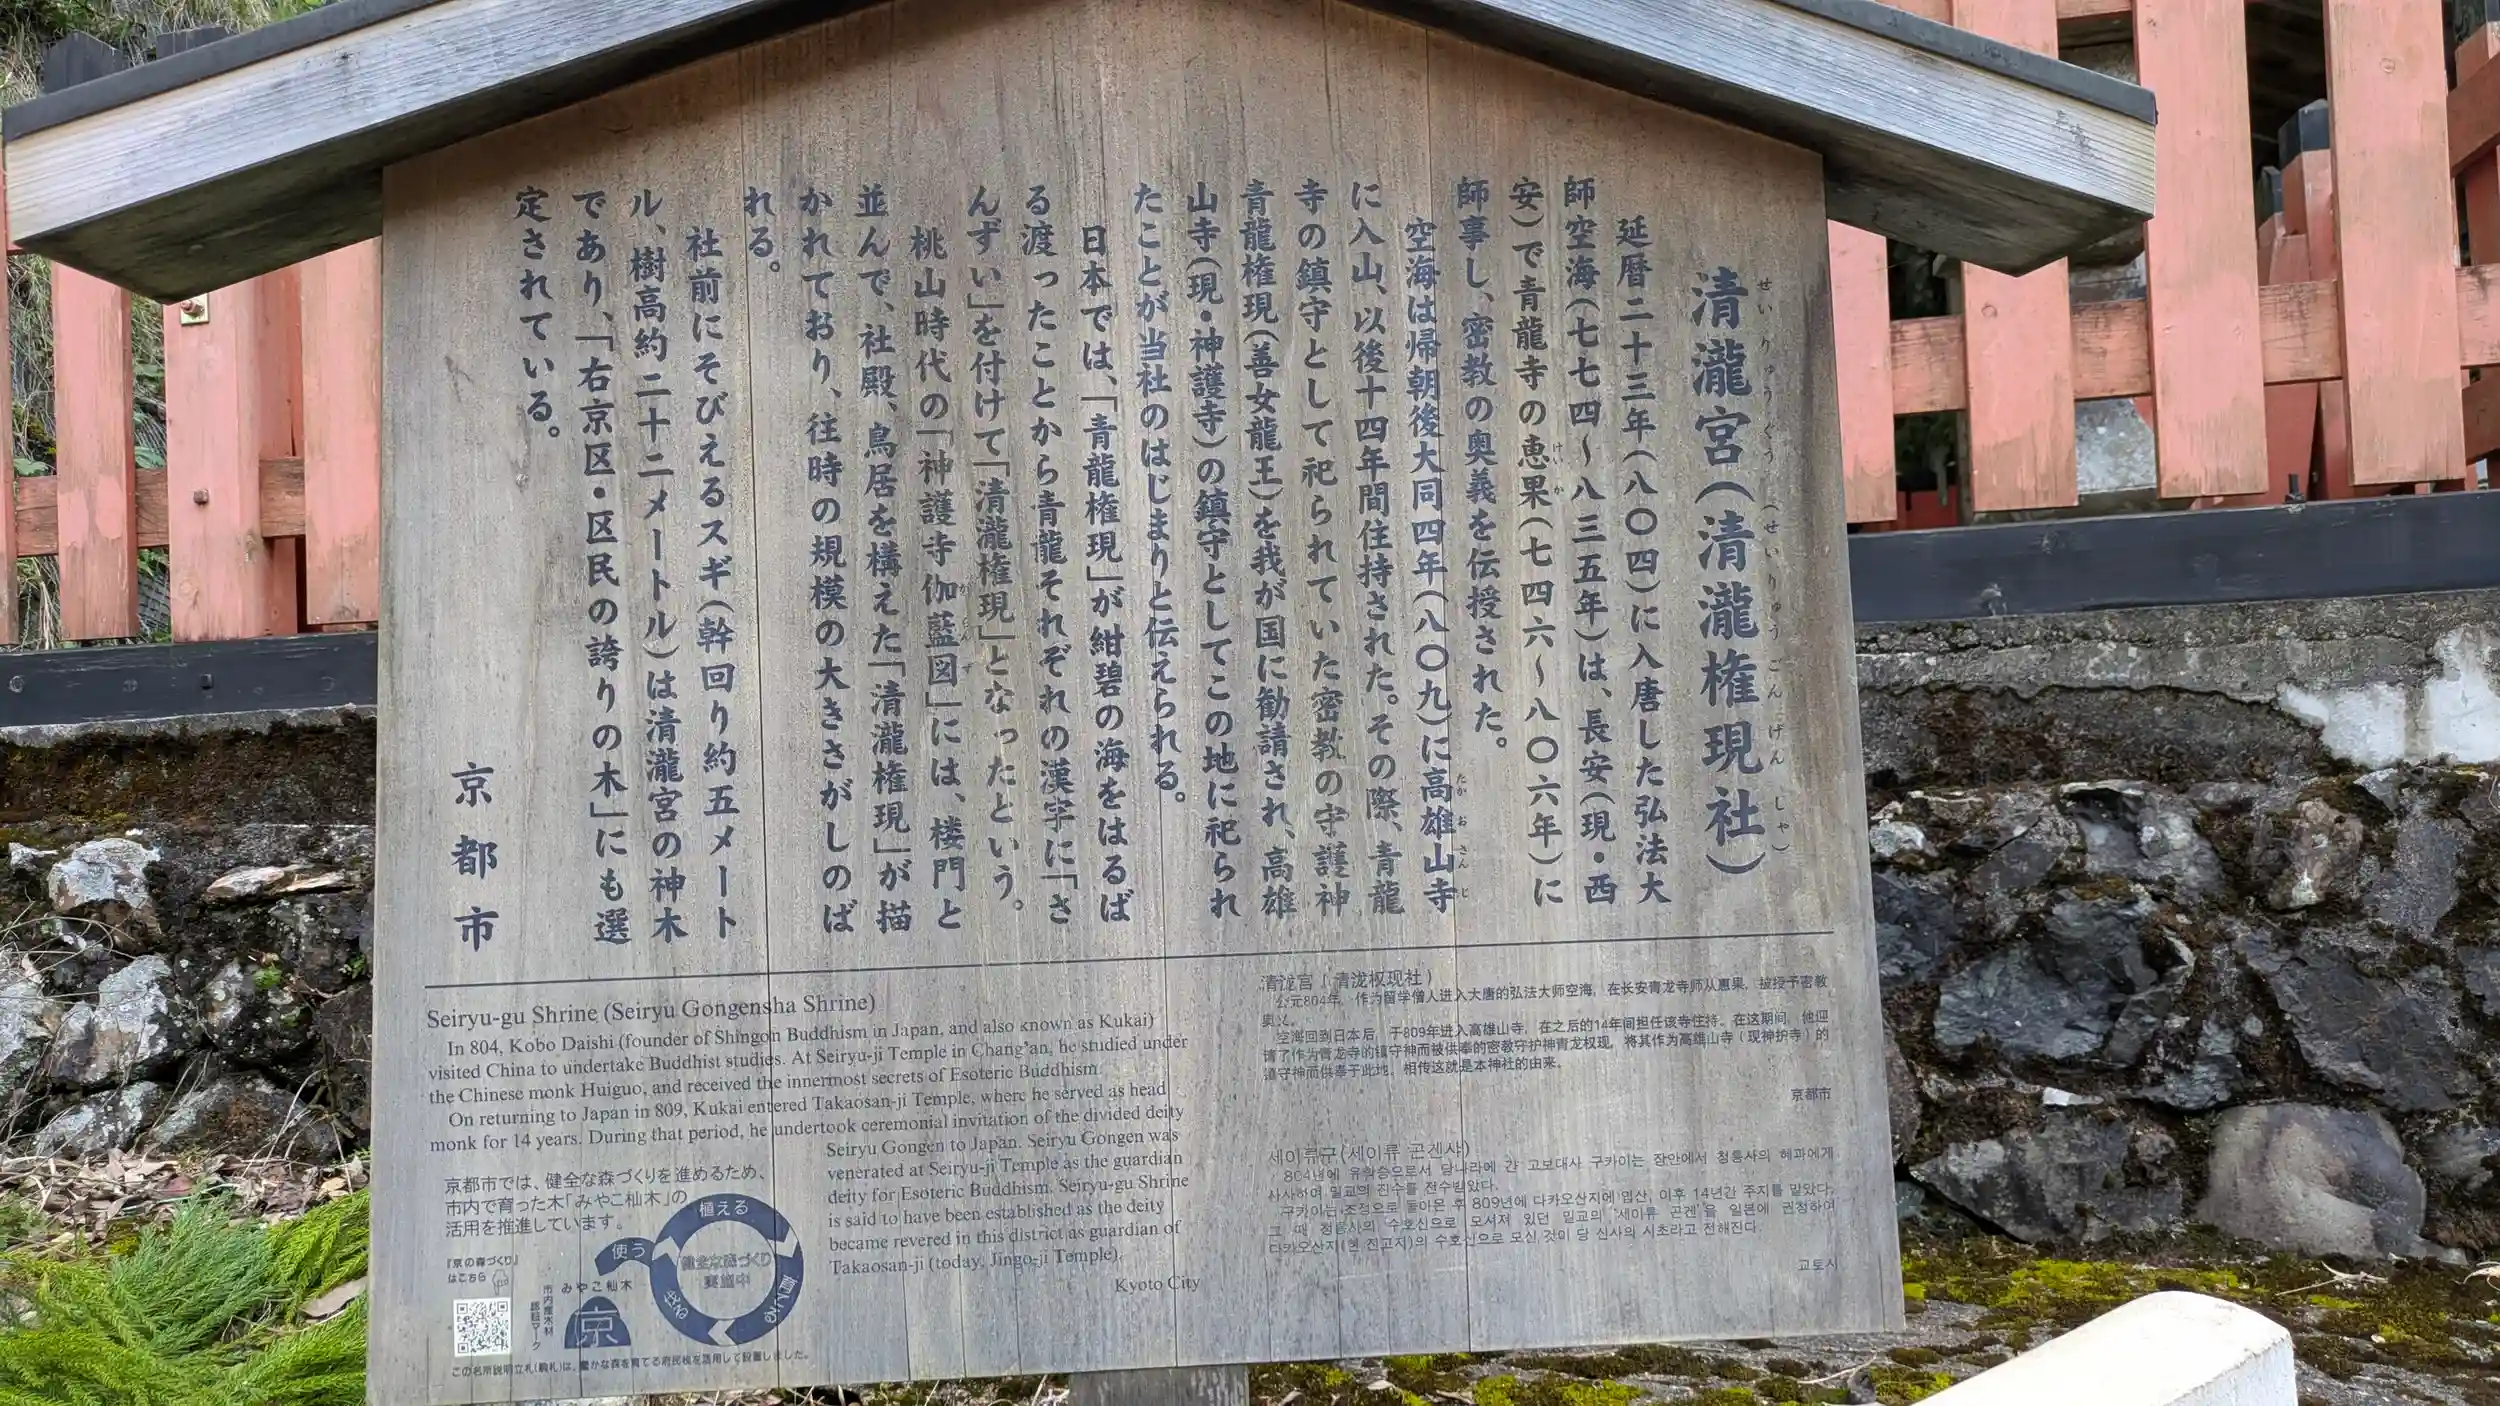 清瀧宮(清瀧権現社)
せいりゅうぐう (せいりゅうごんげんしゃ)
延暦二十三年(八〇四)に入唐した弘法大
師空海(七七四〜八三五年)は、長安(現・西
安)で青龍寺の恵果(七四六〜八〇六年)に
けいか
師事し、密教の奥義を伝授された。
空海は帰朝後大同四年(八〇九)に高雄山寺
たかおさんじ
に入山、以後十四年間住持された。その際、青龍
寺の鎮守として祀られていた密教の守護神
青龍権現(善女龍王)を我が国に勧請され、高雄
山寺(現・神護寺)の鎮守としてこの地に祀られ
たことが当社のはじまりと伝えられる。
日本では、「青龍権現」が紺碧の海をはるば
る渡ったことから青龍それぞれの漢字に「さ
んずい」を付けて「清瀧権現」となったという。
桃山時代の「神護寺伽藍図」には、楼門と
がらんず
並んで、社殿、鳥居を構えた「清瀧権現」が描
かれており、往時の規模の大きさがしのば
れる。
社前にそびえるスギ(幹回り約五メート
ル、樹高約二十二メートル)は清瀧宮の神木
であり、「右京区・区民の誇りの木」にも選
定されている。
京都市
Seiryu-gu Shrine (Seiryu Gongensha Shrine)
In 804, Kobo Daishi (founder of Shingon Buddhism in Japan, and also known as Kukai)
visited China to undertake Buddhist studies. At Seiryu-ji Temple in Chang'an, he studied under
the Chinese monk Huiguo, and received the innermost secrets of Esoteric Buddhism.
On returning to Japan in 809, Kukai entered Takaosan-ji Temple, where he served as head
monk for 14 years. During that period, he undertook ceremonial invitation of the divided deity
Seiryu Gongen to Japan. Seiryu Gongen was
venerated at Seiryu-ji Temple as the guardian
deity for Esoteric Buddhism. Seiryu-gu Shrine
is said to have been established as the deity
became revered in this district as guardian of
Takaosan-ji (today, Jingo-ji Temple).
Kyoto City
清泷宫(清泷权现社)
公元804年，作为留学僧人进入大唐的弘法大师空海，在长安青龙寺师从惠果，被授予密教
奥义。
空海回到日本后，于809年进入高雄山寺，在之后的14年间担任该寺住持。在这期间，他迎
请了作为青龙寺的镇守神而被供奉的密教守护神青龙权现，将其作为高雄山寺（现神护寺）的
镇守神而供奉于此地，相传这就是本神社的由来。
京都市
세이류구(세이류 곤겐샤)
804년에 유학승으로서 당나라에 간 고보대사 구카이는 장안에서 청룡사의 혜과에게
사사하여 밀교의 진수를 전수받았다.
구카이는 조정으로 돌아온 후 809년에 다카오산지에 입산, 이후 14년간 주지를 맡았다.
그 때 청룡사의 수호신으로 모셔져 있던 밀교의 '세이류 곤겐'을 일본에 권청하여
다카오산지(현 진고지)의 수호신으로 모신 것이 당 신사의 시초라고 전해진다.
교토시
京都市では、健全な森づくりを進めるため、
市内で育った木「みやこ杣木」の
活用を推進しています。
「京の森づくり」
はこちら
市内産木材
認証マーク
みやこ杣木
京
植える
育てる
伐る
使う
健全な森づくり
実施中
この名所説明立札(駒札)は、豊かな森を育てる府民税を活用して設置しました。